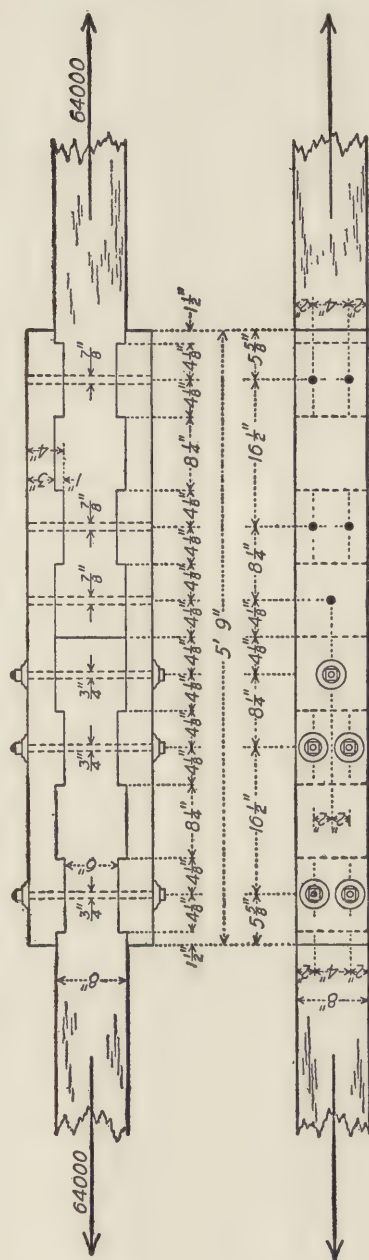 64000
64000
8"
3/4"
6"
3/4"
3/4"
7/8"
7/8"
1"
3"
4"
7/8"
1½" 4⅛" 4⅛" 8¼" 4⅛" 4⅛" 4⅛" 4⅛" 4⅛" 4⅛" 4⅛" 4⅛" 8¼" 4⅛" 4⅛" 1½"
5' 9"
5⅝" 16½" 8¼" 4⅛" 4⅛" 8¼" 16½" 5⅝"
8"
2" 4" 2"
2" 2"
2" 4" 2"